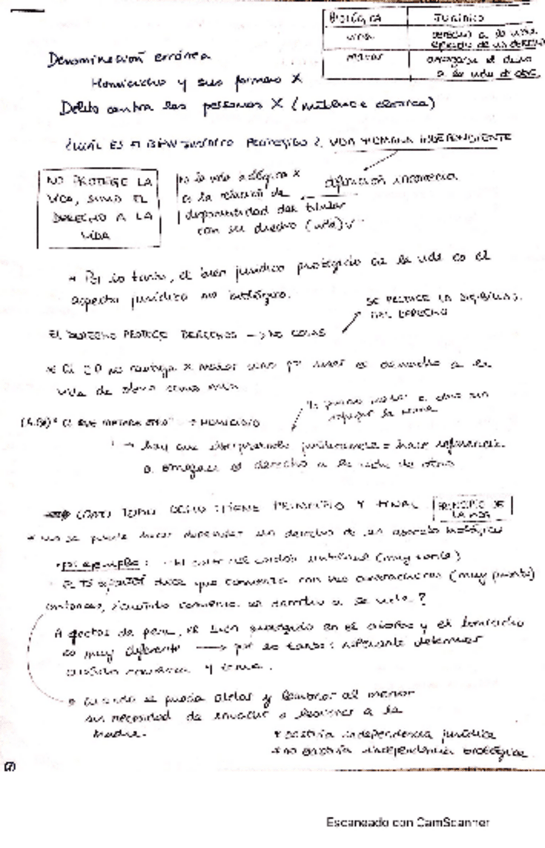 BIOLÓGICA | JURÍDICO
VIDA | derecho a la vida
MATAR
a la vida de otro.
Denominación errónea
Homicidio y sus formas X
Delito contra las personas X
¿CUÁL ES EL BIEN JURÍDICO PROTEGIDO? VIDA HUMANA INDEPENDIENTE
NO PROTEGE LA
VIDA, SINO EL
DERECHO A LA
VIDA
No la vida biológica X
es la relación de
disponibilidad del titular
con su derecho (vida) ✓
definición incorrecta
→ Por lo tanto, el bien jurídico protegido es la vida es el
aspecto jurídico no biológico.
EL DERECHO PROTEGE DERECHOS → NO COSAS
SE PROTEGE LA
DEL DERECHO
El CP no castiga X matar sino por el derecho a la
vida de otro
"EL QUE MATARE OTRO" → HOMICIDIO
→ hay que interpretarlo = hace referencia
a el derecho a la vida de otro
COMO TODO DELITO TIENE PRINCIPIO Y FINAL
PRINCIPIO DE
LA VIDA
no se puede hacer depender un derecho de un aspecto biológico
Por ejemplo: el corte del cordón umbilical (muy tarde)
El TS español dice que comienza con las contracciones (muy pronto)
entonces, ¿cuándo comienza el derecho a la vida?
A efectos de pena, el bien protegido en el aborto y el homicidio
es muy diferente → por lo tanto: importante determinar
cuándo comienza y termina.
Cuando se pueda aislar y al menor
sin necesidad de invadir o lesionar a la
madre.
* existiría independencia jurídica
* no existiría independencia biológica
Escaneado con CamScanner